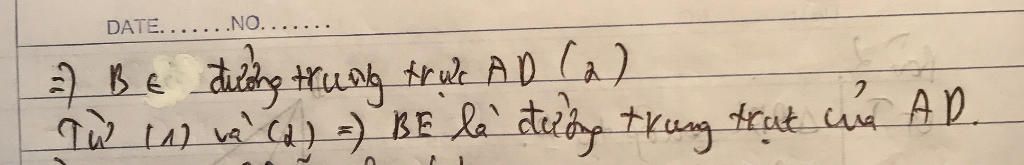 DATE.......NO.......
=) B ∈ đường trung trực AD (2)
Từ (1) và (2) =) BE là đường trung trực của AD.